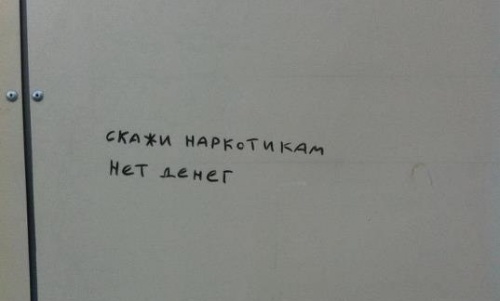 скажи наркотикам
нет денег